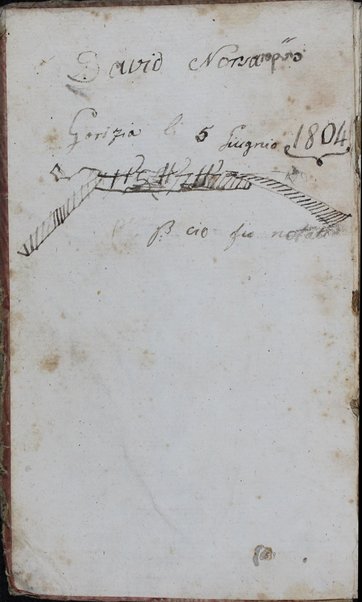 David Norsa pp̃o
Gorizia li 5 Giugnio 1804
ꝑ ciò fu notato